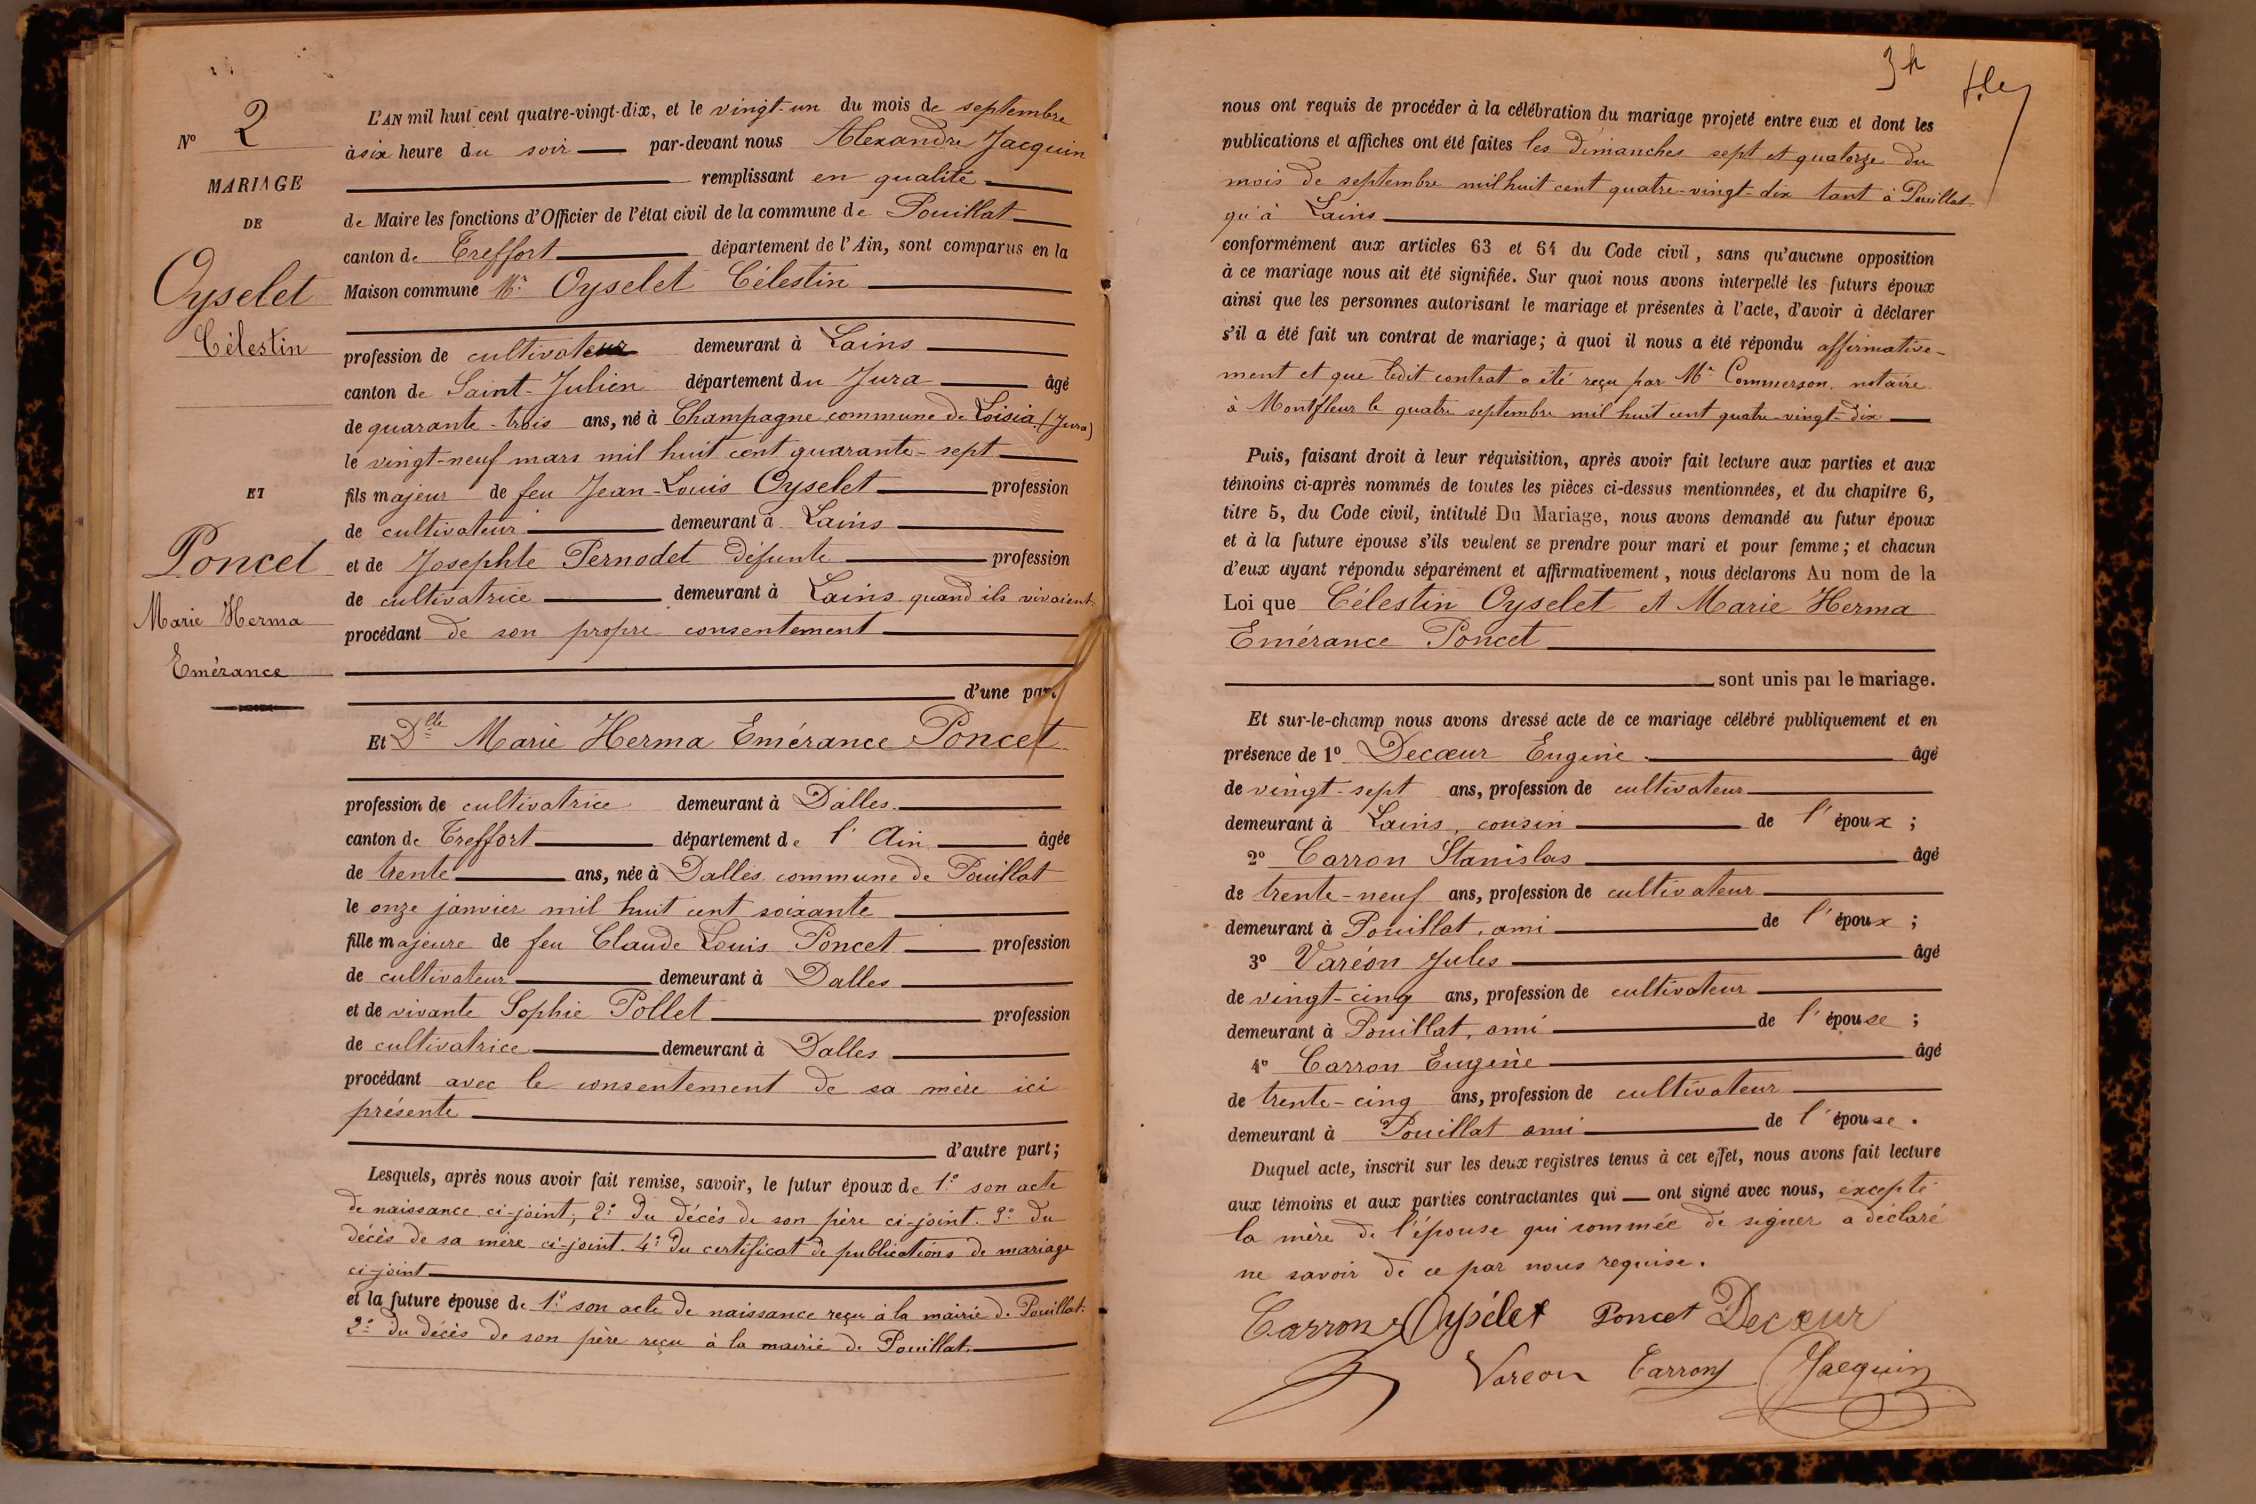 Nº 2
MARIAGE
DE
Oyselet
Célestin
ET
Poncet
Marie Herma
Emérance
L'AN mil huit cent quatre-vingt-dix, et le vingt-un du mois de septembre
à six heure du soir par-devant nous Alexandre Jacquin
remplissant en qualité
de Maire les fonctions d'Officier de l'état civil de la commune de Pouillat
canton de Treffort département de l'Ain, sont comparus en la
Maison commune Mr Oyselet Célestin
profession de cultivateur demeurant à Lains
canton de Saint-Julien département du Jura âgé
de quarante-trois ans, né à Champagne commune de Loisia (Jura)
le vingt-neuf mars mil huit cent quarante-sept
fils majeur de feu Jean-Louis Oyselet profession
de cultivateur demeurant à Lains
et de Josephte Pernodet défunte profession
de cultivatrice demeurant à Lains quand ils vivaient
procédant de son propre consentement
d'une part
Et Dlle Marie Herma Emérance Poncet
profession de cultivatrice demeurant à Dalles
canton de Treffort département de l'Ain âgée
de trente ans, née à Dalles commune de Pouillat
le onze janvier mil huit cent soixante
fille majeure de feu Claude Louis Poncet profession
de cultivateur demeurant à Dalles
et de vivante Sophie Pollet profession
de cultivatrice demeurant à Dalles
procédant avec le consentement de sa mère ici
présente
d'autre part;
Lesquels, après nous avoir fait remise, savoir, le futur époux de 1º son acte
de naissance ci-joint; 2º du décès de son père ci-joint. 3º du
décès de sa mère ci-joint. 4º du certificat de publications de mariage
ci-joint
et la future épouse de 1º son acte de naissance reçu à la mairie de Pouillat.
2º du décès de son père reçu à la mairie de Pouillat.
nous ont requis de procéder à la célébration du mariage projeté entre eux et dont les
publications et affiches ont été faites les dimanches sept et quatorze du
mois de septembre mil huit cent quatre-vingt-dix tant à Pouillat
qu'à Lains
conformément aux articles 63 et 64 du Code civil, sans qu'aucune opposition
à ce mariage nous ait été signifiée. Sur quoi nous avons interpellé les futurs époux
ainsi que les personnes autorisant le mariage et présentes à l'acte, d'avoir à déclarer
s'il a été fait un contrat de mariage; à quoi il nous a été répondu affirmative-
ment et que ledit contrat a été reçu par Me Commerson notaire
à Montfleur le quatre septembre mil huit cent quatre-vingt-dix
Puis, faisant droit à leur réquisition, après avoir fait lecture aux parties et aux
témoins ci-après nommés de toutes les pièces ci-dessus mentionnées, et du chapitre 6,
titre 5, du Code civil, intitulé Du Mariage, nous avons demandé au futur époux
et à la future épouse s'ils veulent se prendre pour mari et pour femme; et chacun
d'eux ayant répondu séparément et affirmativement, nous déclarons Au nom de la
Loi que Célestin Oyselet et Marie Herma
Emérance Poncet
sont unis par le mariage.
Et sur-le-champ nous avons dressé acte de ce mariage célébré publiquement et en
présence de 1º Decœur Eugène âgé
de vingt-sept ans, profession de cultivateur
demeurant à Lains, cousin de l'époux;
2º Carron Stanislas âgé
de trente-neuf ans, profession de cultivateur
demeurant à Pouillat, ami de l'époux;
3º Varéon Jules âgé
de vingt-cinq ans, profession de cultivateur
demeurant à Pouillat, ami de l'épouse;
4º Carron Eugène âgé
de trente-cinq ans, profession de cultivateur
demeurant à Pouillat ami de l'épouse.
Duquel acte, inscrit sur les deux registres tenus à cet effet, nous avons fait lecture
aux témoins et aux parties contractantes qui ont signé avec nous, excepté
la mère de l'épouse qui sommée de signer a déclaré
ne savoir de ce par nous requise.
Carron Oysélet Poncet Decœur
Vareon Carron Jacquin